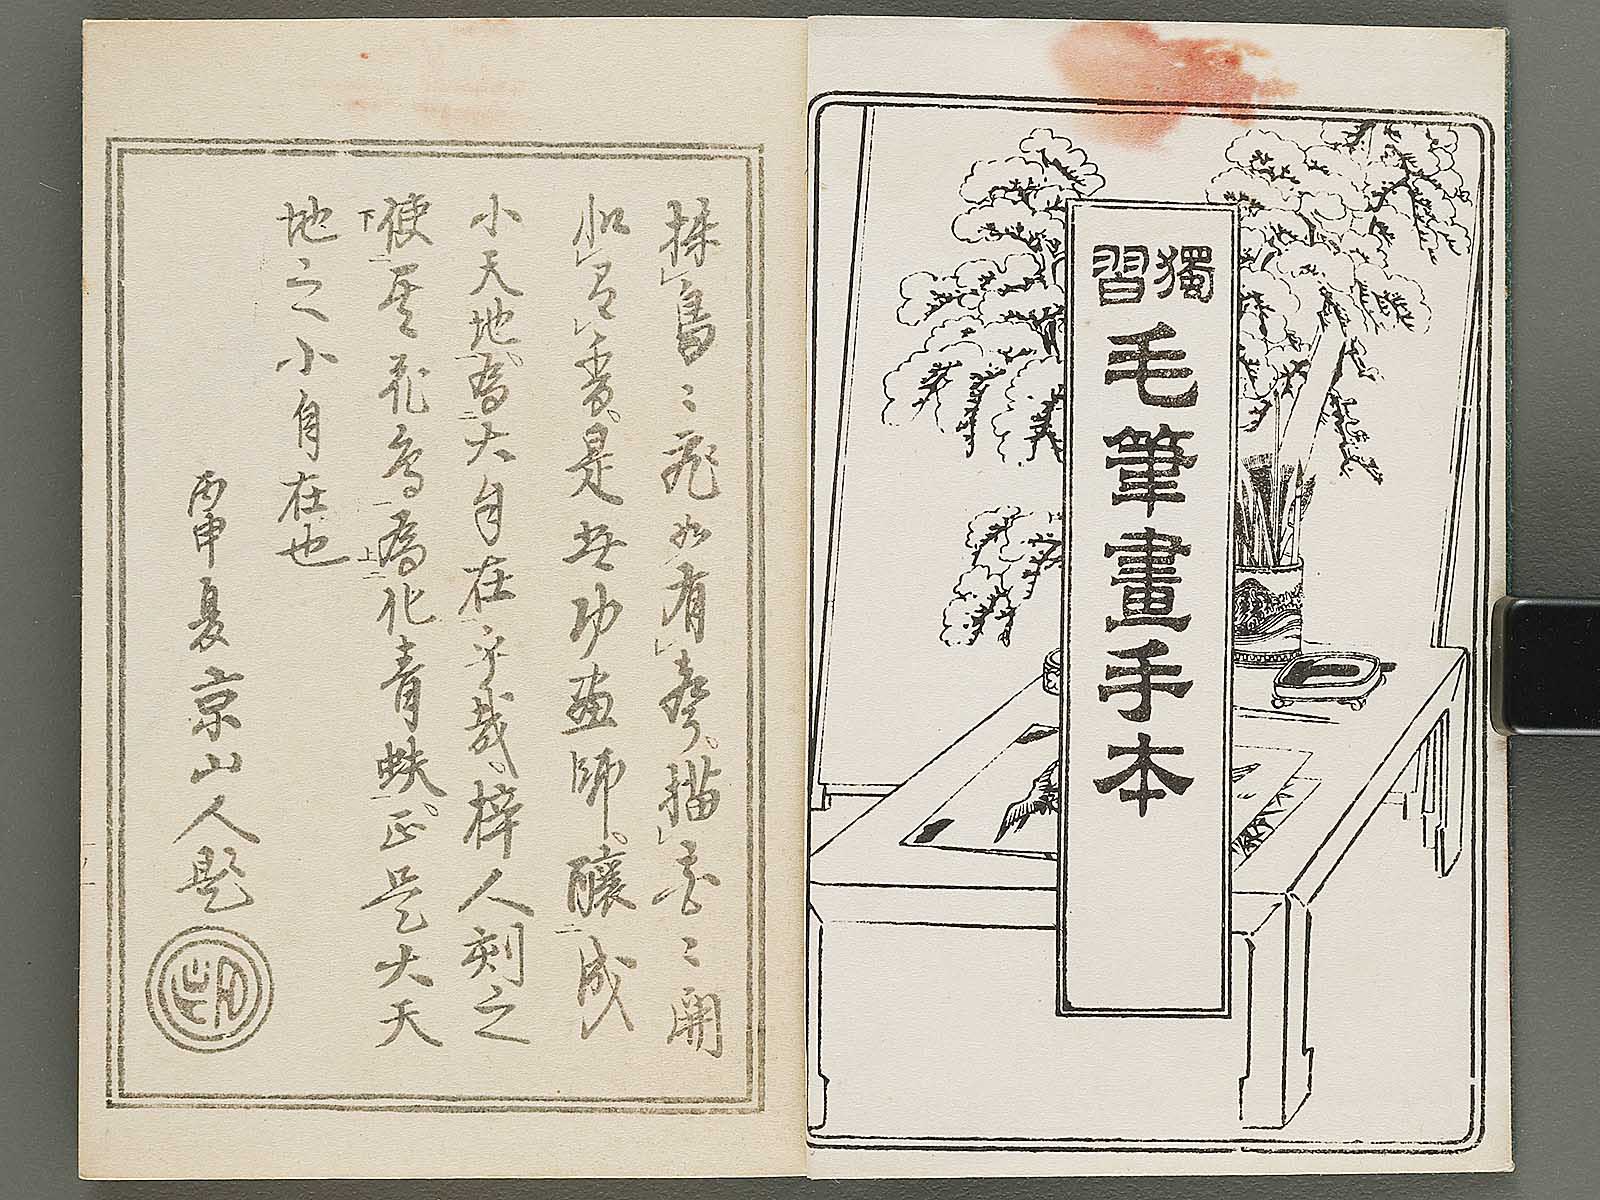 獨習毛筆畫手本
抹鳥〻飛如有聲。描花〻開
似有香。是無功画師。釀成
小天地為大自在乎哉。梓人刻之
使其花鳥為化青蚨。正是大天
地之小自在也
丙申夏京山人題